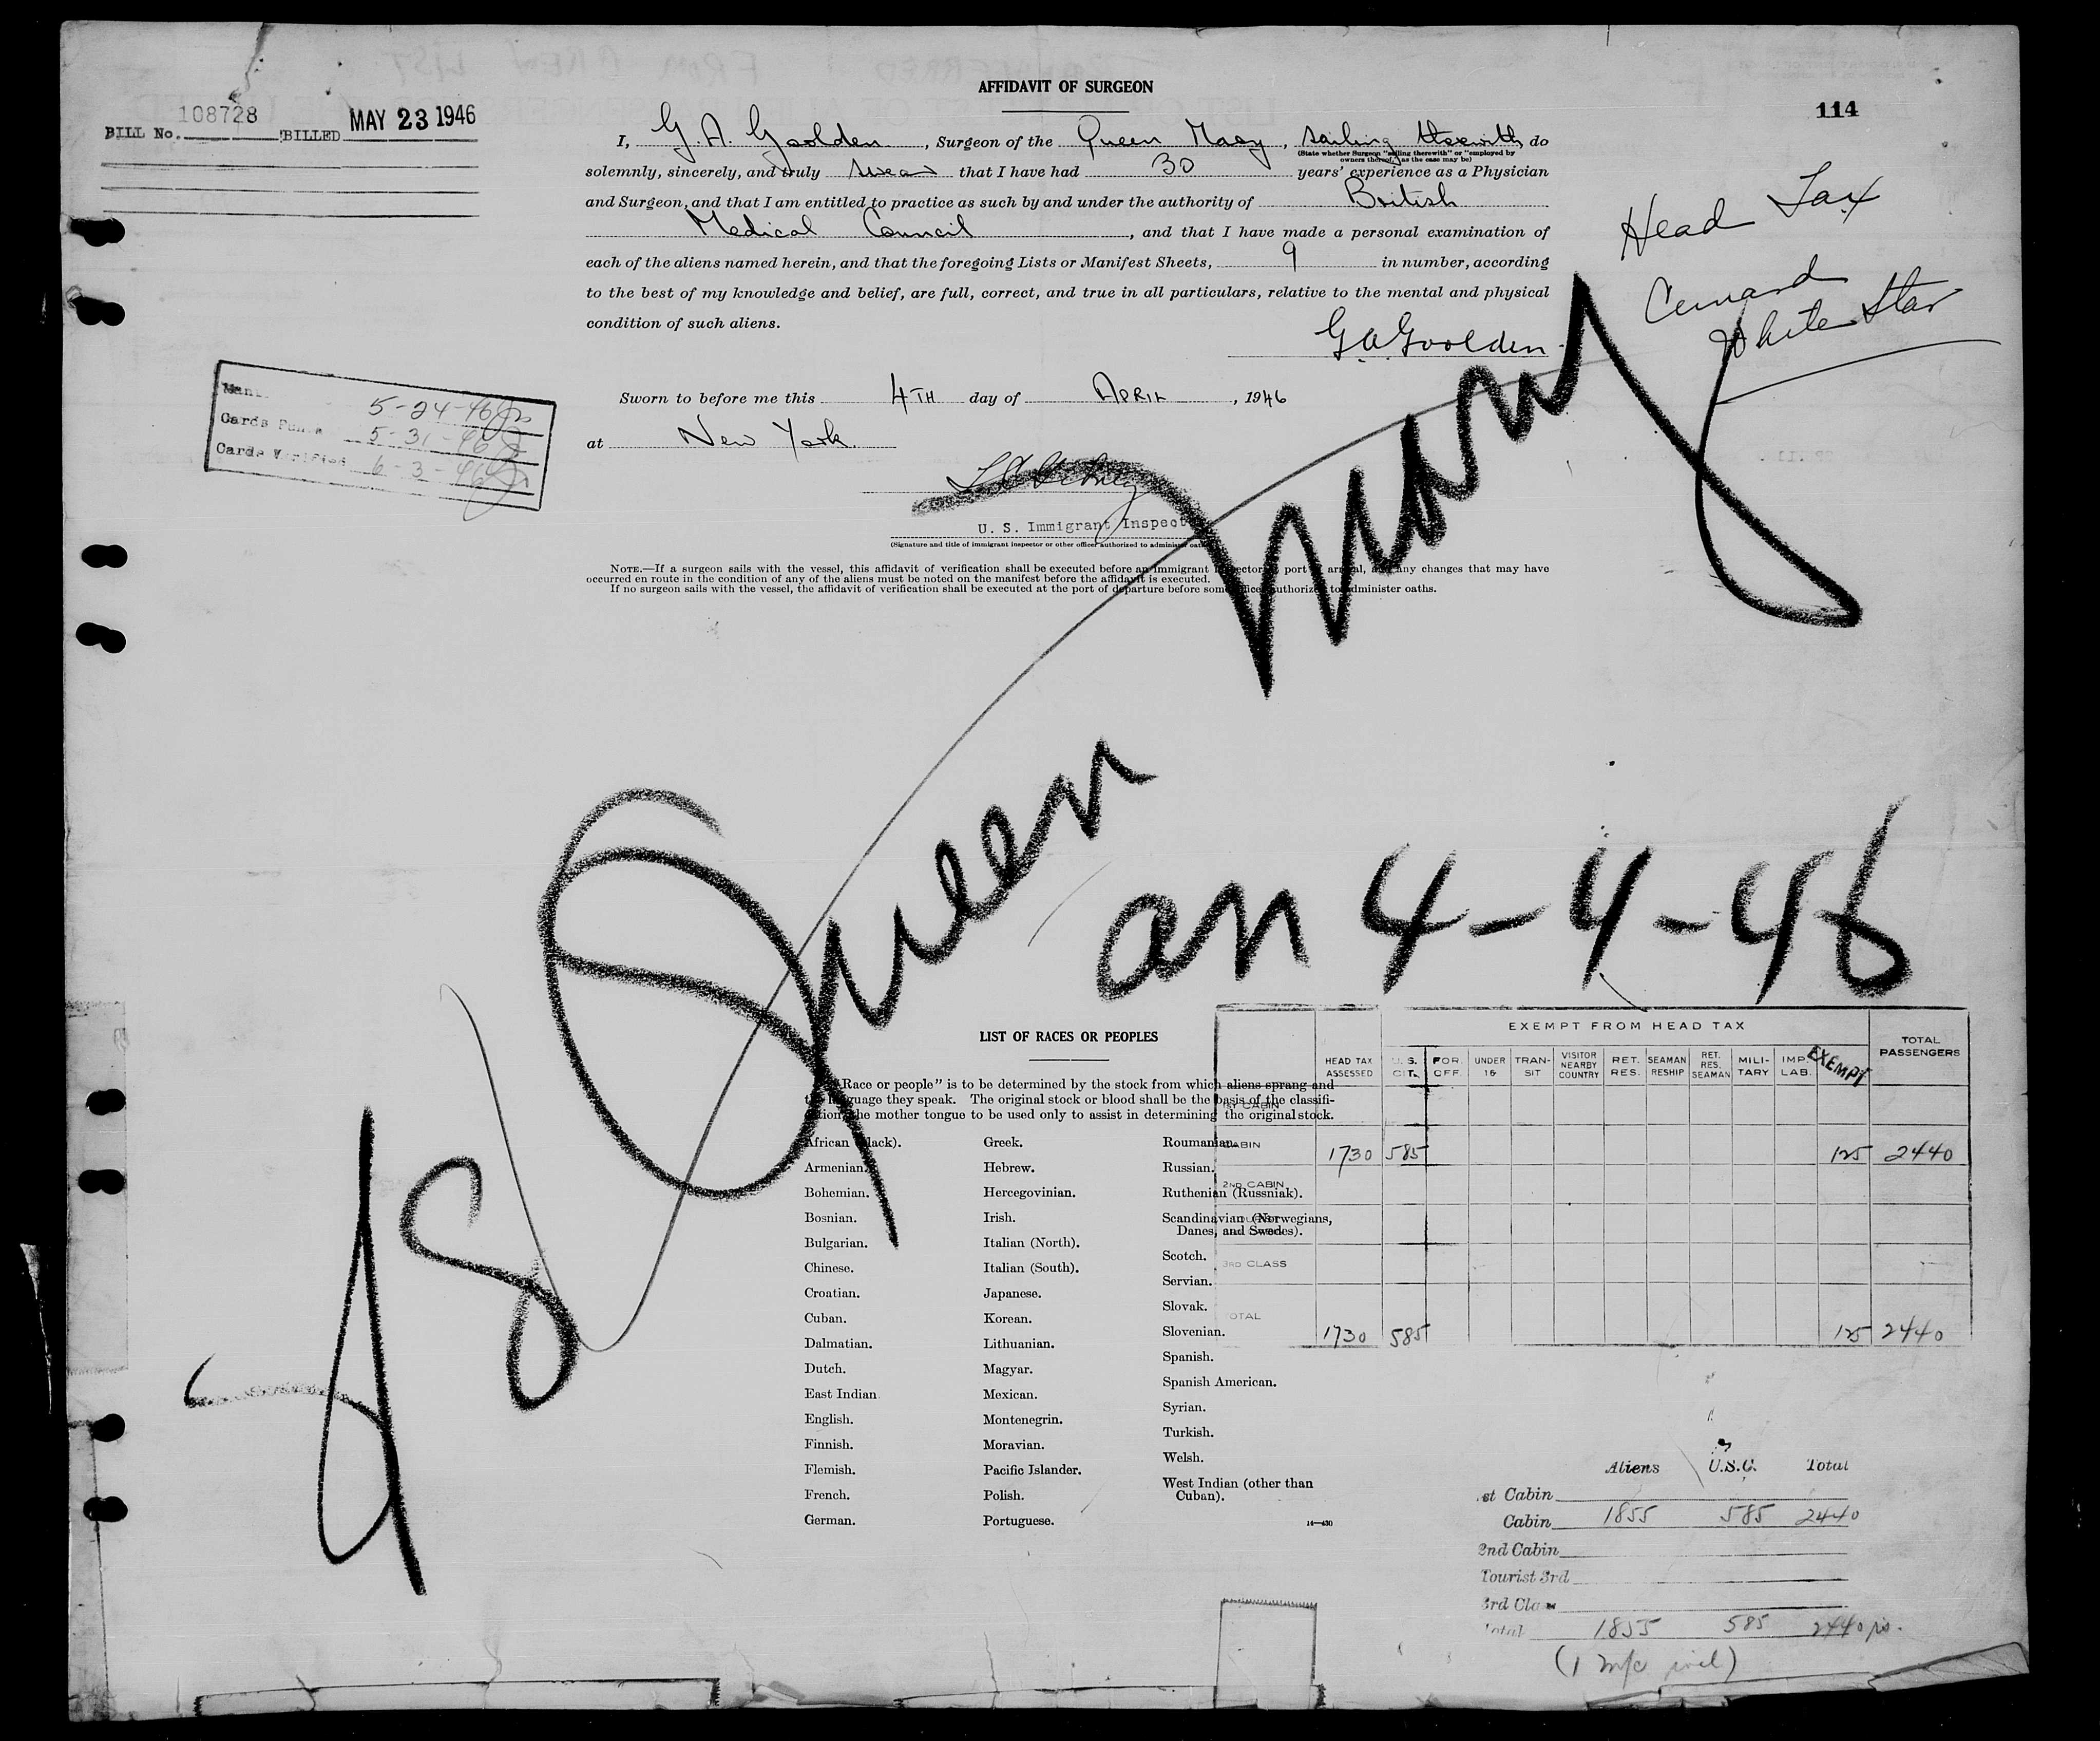 AFFIDAVIT OF SURGEON
114
BILL No. 108728 BILLED MAY 23 1946
I, G. A. Goolden, Surgeon of the Queen Mary, sailing therewith, do
(State whether Surgeon "sailing therewith" or "employed by
owners thereof," as the case may be)
solemnly, sincerely, and truly swear that I have had 30 years' experience as a Physician
and Surgeon, and that I am entitled to practice as such by and under the authority of British
Medical Council, and that I have made a personal examination of
each of the aliens named herein, and that the foregoing Lists or Manifest Sheets, 9 in number, according
to the best of my knowledge and belief, are full, correct, and true in all particulars, relative to the mental and physical
condition of such aliens.
G A Goolden
Head Tax
Cunard
White Star
Sworn to before me this 4TH day of APRIL, 1946
at New York
U. S. Immigrant Inspect
(Signature and title of immigrant inspector or other officer authorized to administer oaths)
5-24-46
Cards 5-31-46
Cards Verified 6-3-46
NOTE.—If a surgeon sails with the vessel, this affidavit of verification shall be executed before an immigrant inspector at port of arrival, and any changes that may have
occurred en route in the condition of any of the aliens must be noted on the manifest before the affidavit is executed.
If no surgeon sails with the vessel, the affidavit of verification shall be executed at the port of departure before some officer authorized to administer oaths.
SS Queen Mary
an 4-4-46
LIST OF RACES OR PEOPLES
"Race or people" is to be determined by the stock from which aliens sprang and
the language they speak. The original stock or blood shall be the basis of the classifi-
cation, the mother tongue to be used only to assist in determining the original stock.
African (black).
Armenian.
Bohemian.
Bosnian.
Bulgarian.
Chinese.
Croatian.
Cuban.
Dalmatian.
Dutch.
East Indian
English.
Finnish.
Flemish.
French.
German.
Greek.
Hebrew.
Hercegovinian.
Irish.
Italian (North).
Italian (South).
Japanese.
Korean.
Lithuanian.
Magyar.
Mexican.
Montenegrin.
Moravian.
Pacific Islander.
Polish.
Portuguese.
Roumanian.
Russian.
Ruthenian (Russniak).
Scandinavian (Norwegians,
Danes, and Swedes).
Scotch.
Servian.
Slovak.
Slovenian.
Spanish.
Spanish American.
Syrian.
Turkish.
Welsh.
West Indian (other than
Cuban).
14—430
EXEMPT FROM HEAD TAX
HEAD TAX ASSESSED U. S. CIT. FOR. OFF. UNDER 16 TRAN-SIT VISITOR NEARBY COUNTRY RET. RES. SEAMAN RESHIP RET. RES. SEAMAN MILI-TARY IMP. LAB. EXEMPT TOTAL PASSENGERS
1ST CABIN
CABIN 1730 585 125 2440
2ND CABIN
3RD CLASS
TOTAL 1730 585 125 2440
Aliens U.S.C. Total
st Cabin
Cabin 1855 585 2440
2nd Cabin
Tourist 3rd
3rd Class
Total 1855 585 2440